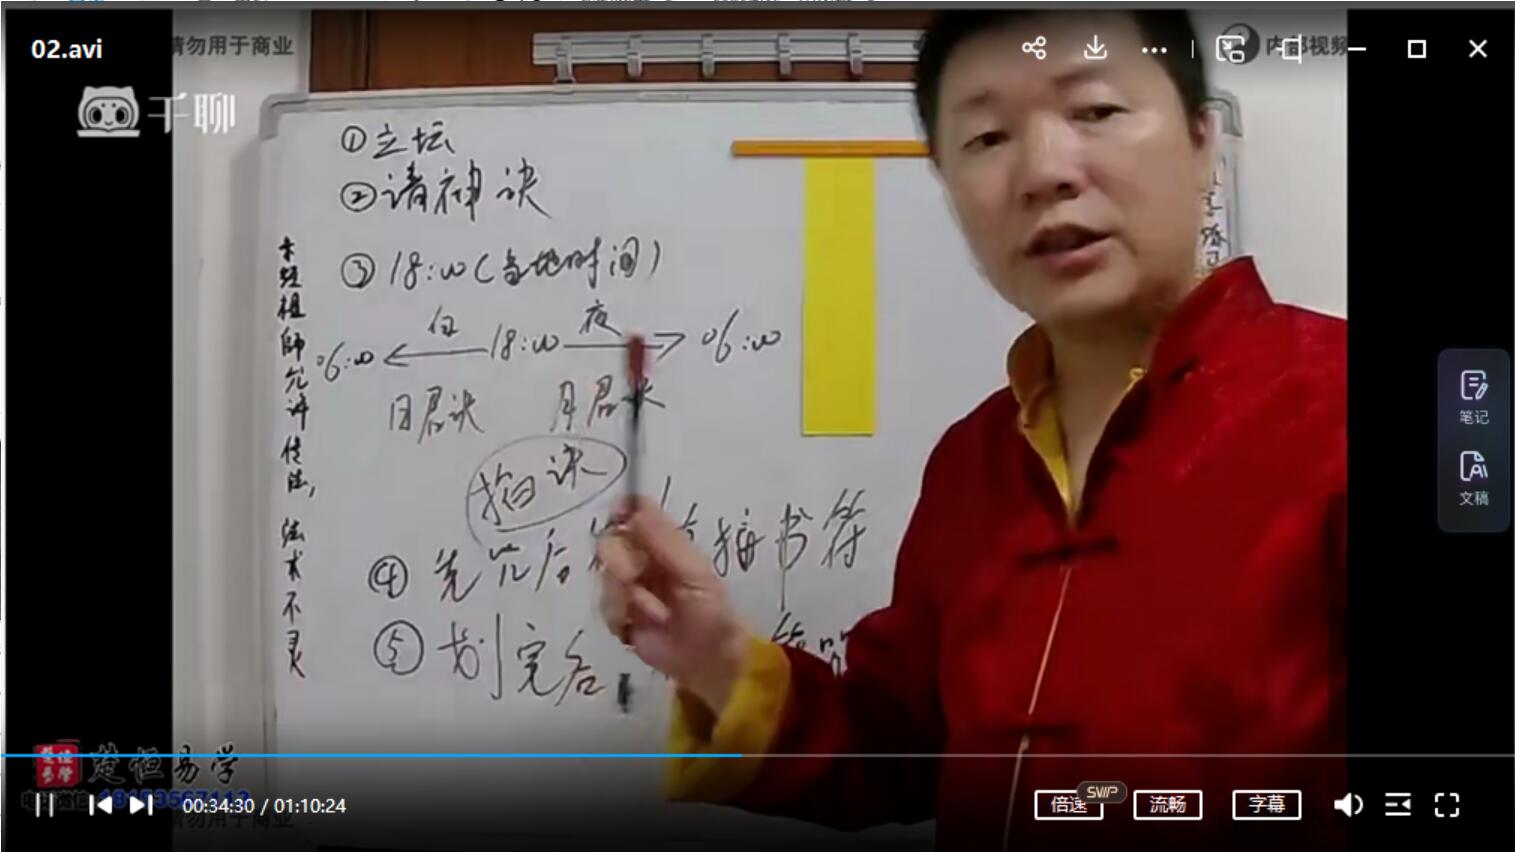 02.avi
请勿用于商业
内部视频
千聊
①立坛
②请神诀
③18:00(当地时间)
白
夜
06:00
18:00
06:00
日君诀
月君诀
掐诀
④先穴后
直接书符
⑤划完后
未经祖师允许传法，法术不灵
笔记
文稿
楚恒易学
楚恒易学
00:34:30 / 01:10:24
倍速
SVIP
流畅
字幕
请勿用于商业